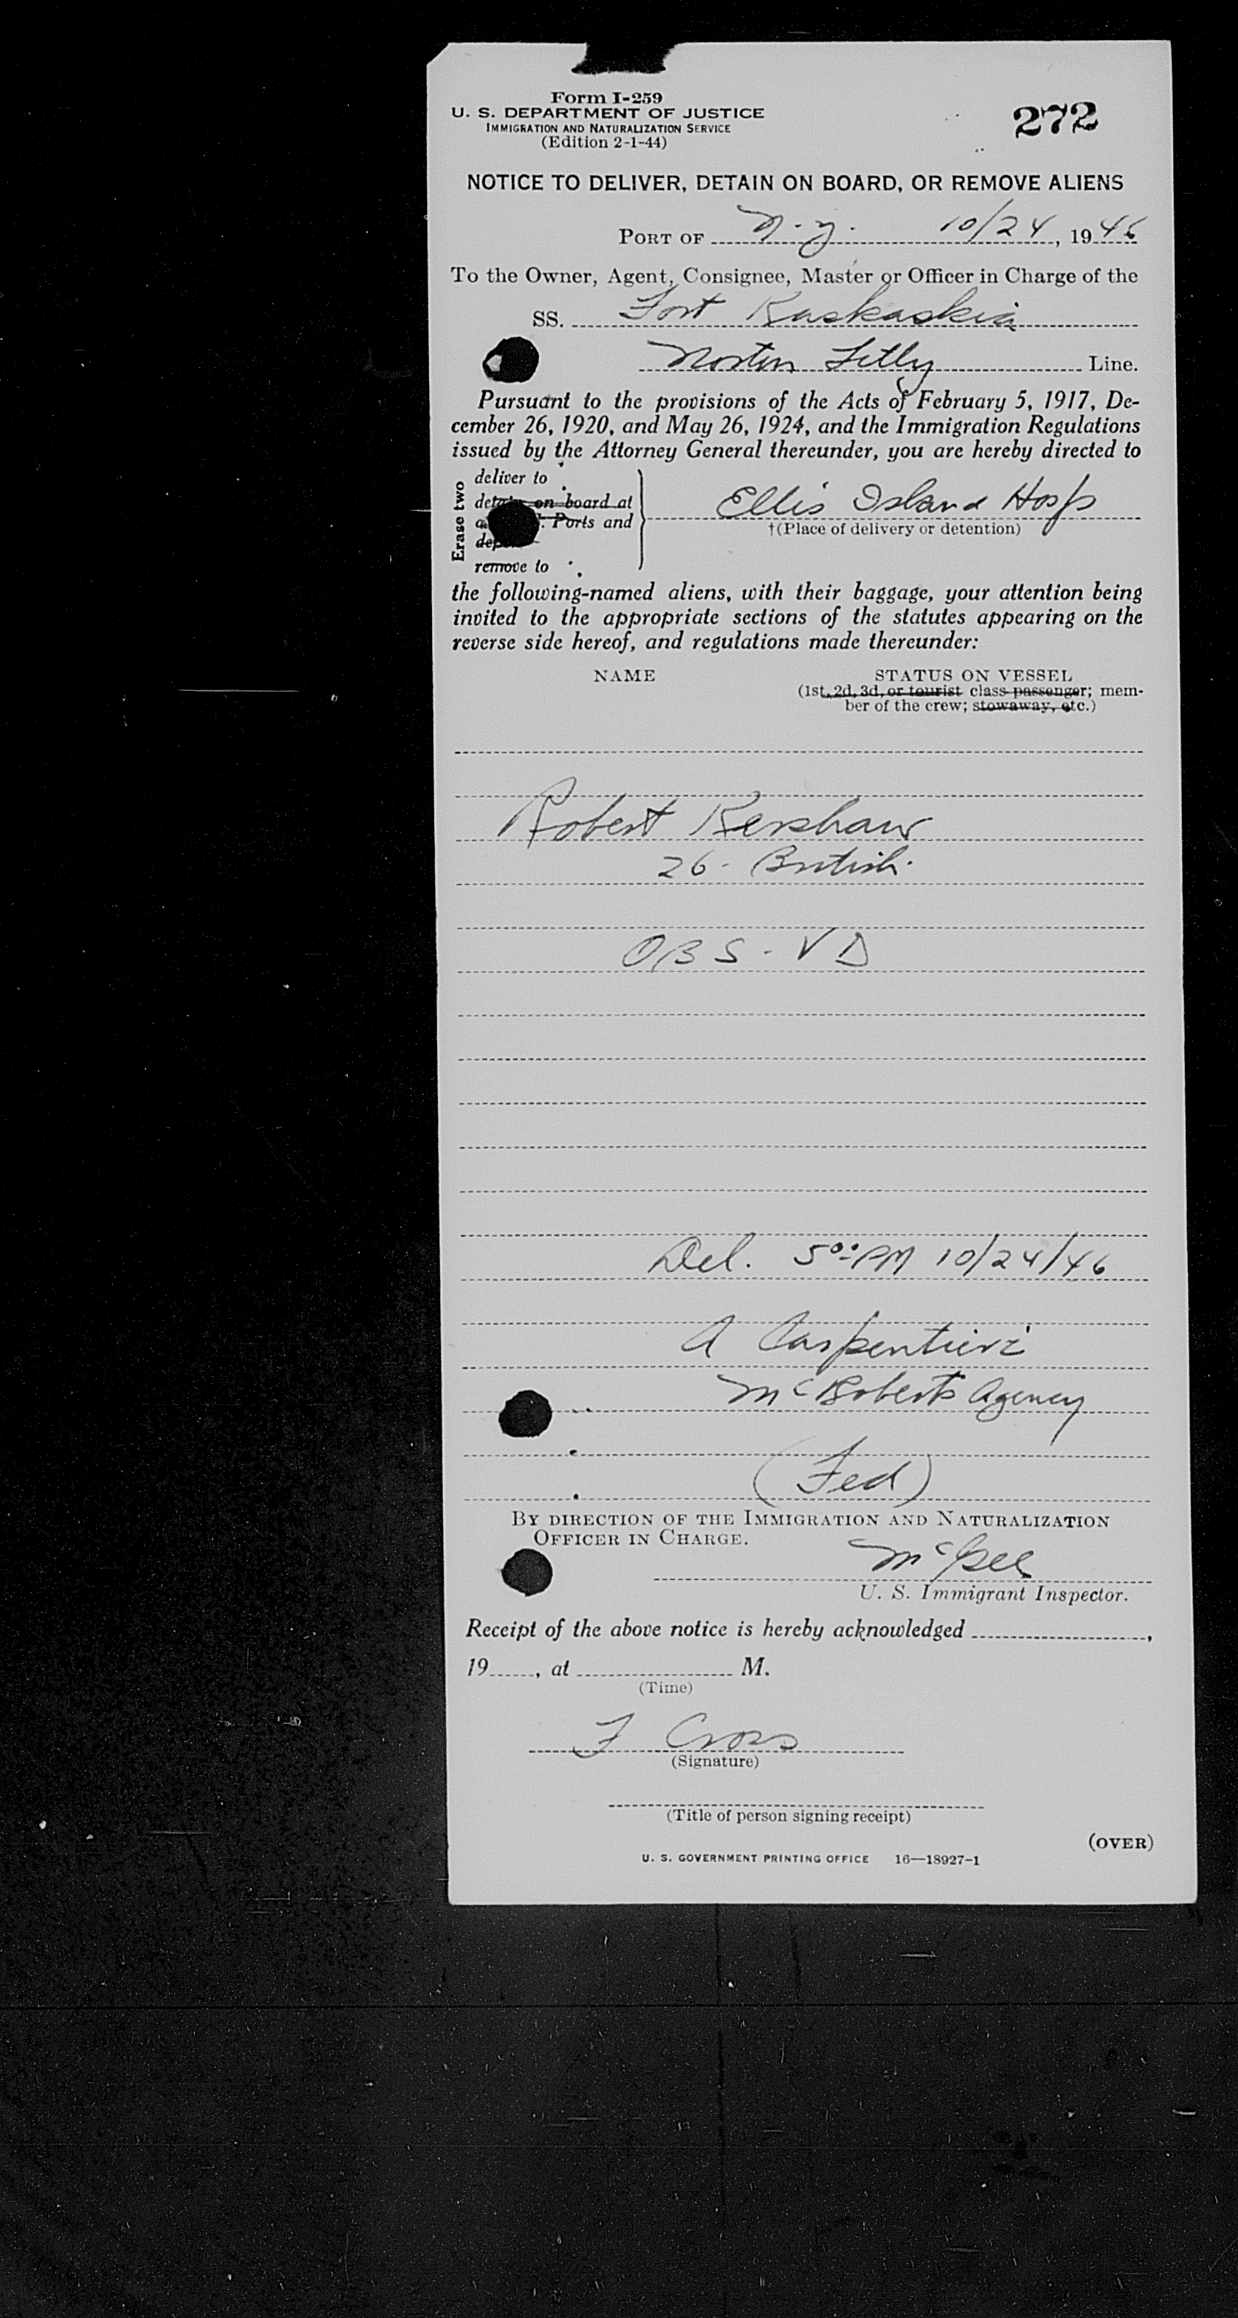 Form I-259
U. S. DEPARTMENT OF JUSTICE
IMMIGRATION AND NATURALIZATION SERVICE
(Edition 2-1-44)
272
NOTICE TO DELIVER, DETAIN ON BOARD, OR REMOVE ALIENS
PORT OF N.Y. 10/24, 1946
To the Owner, Agent, Consignee, Master or Officer in Charge of the
SS. Fort Kaskaskia
Norton Lilly Line.
Pursuant to the provisions of the Acts of February 5, 1917, De-
cember 26, 1920, and May 26, 1924, and the Immigration Regulations
issued by the Attorney General thereunder, you are hereby directed to
Erase two
deliver to
detain on board at
Ports and
remove to
Ellis Island Hosp
†(Place of delivery or detention)
the following-named aliens, with their baggage, your attention being
invited to the appropriate sections of the statutes appearing on the
reverse side hereof, and regulations made thereunder:
NAME
STATUS ON VESSEL
(1st, 2d, 3d, or tourist class passenger; mem-
ber of the crew; stowaway, etc.)
Robert Kershaw
26 - British.
OBS - VD
Del. 5 00 PM 10/24/46
A Carpentieri
McRoberts Agency
(Fed)
BY DIRECTION OF THE IMMIGRATION AND NATURALIZATION
OFFICER IN CHARGE.
McGee
U. S. Immigrant Inspector.
Receipt of the above notice is hereby acknowledged ,
19 , at M.
(Time)
F Cross
(Signature)
(Title of person signing receipt)
(OVER)
U. S. GOVERNMENT PRINTING OFFICE 16—18927-1